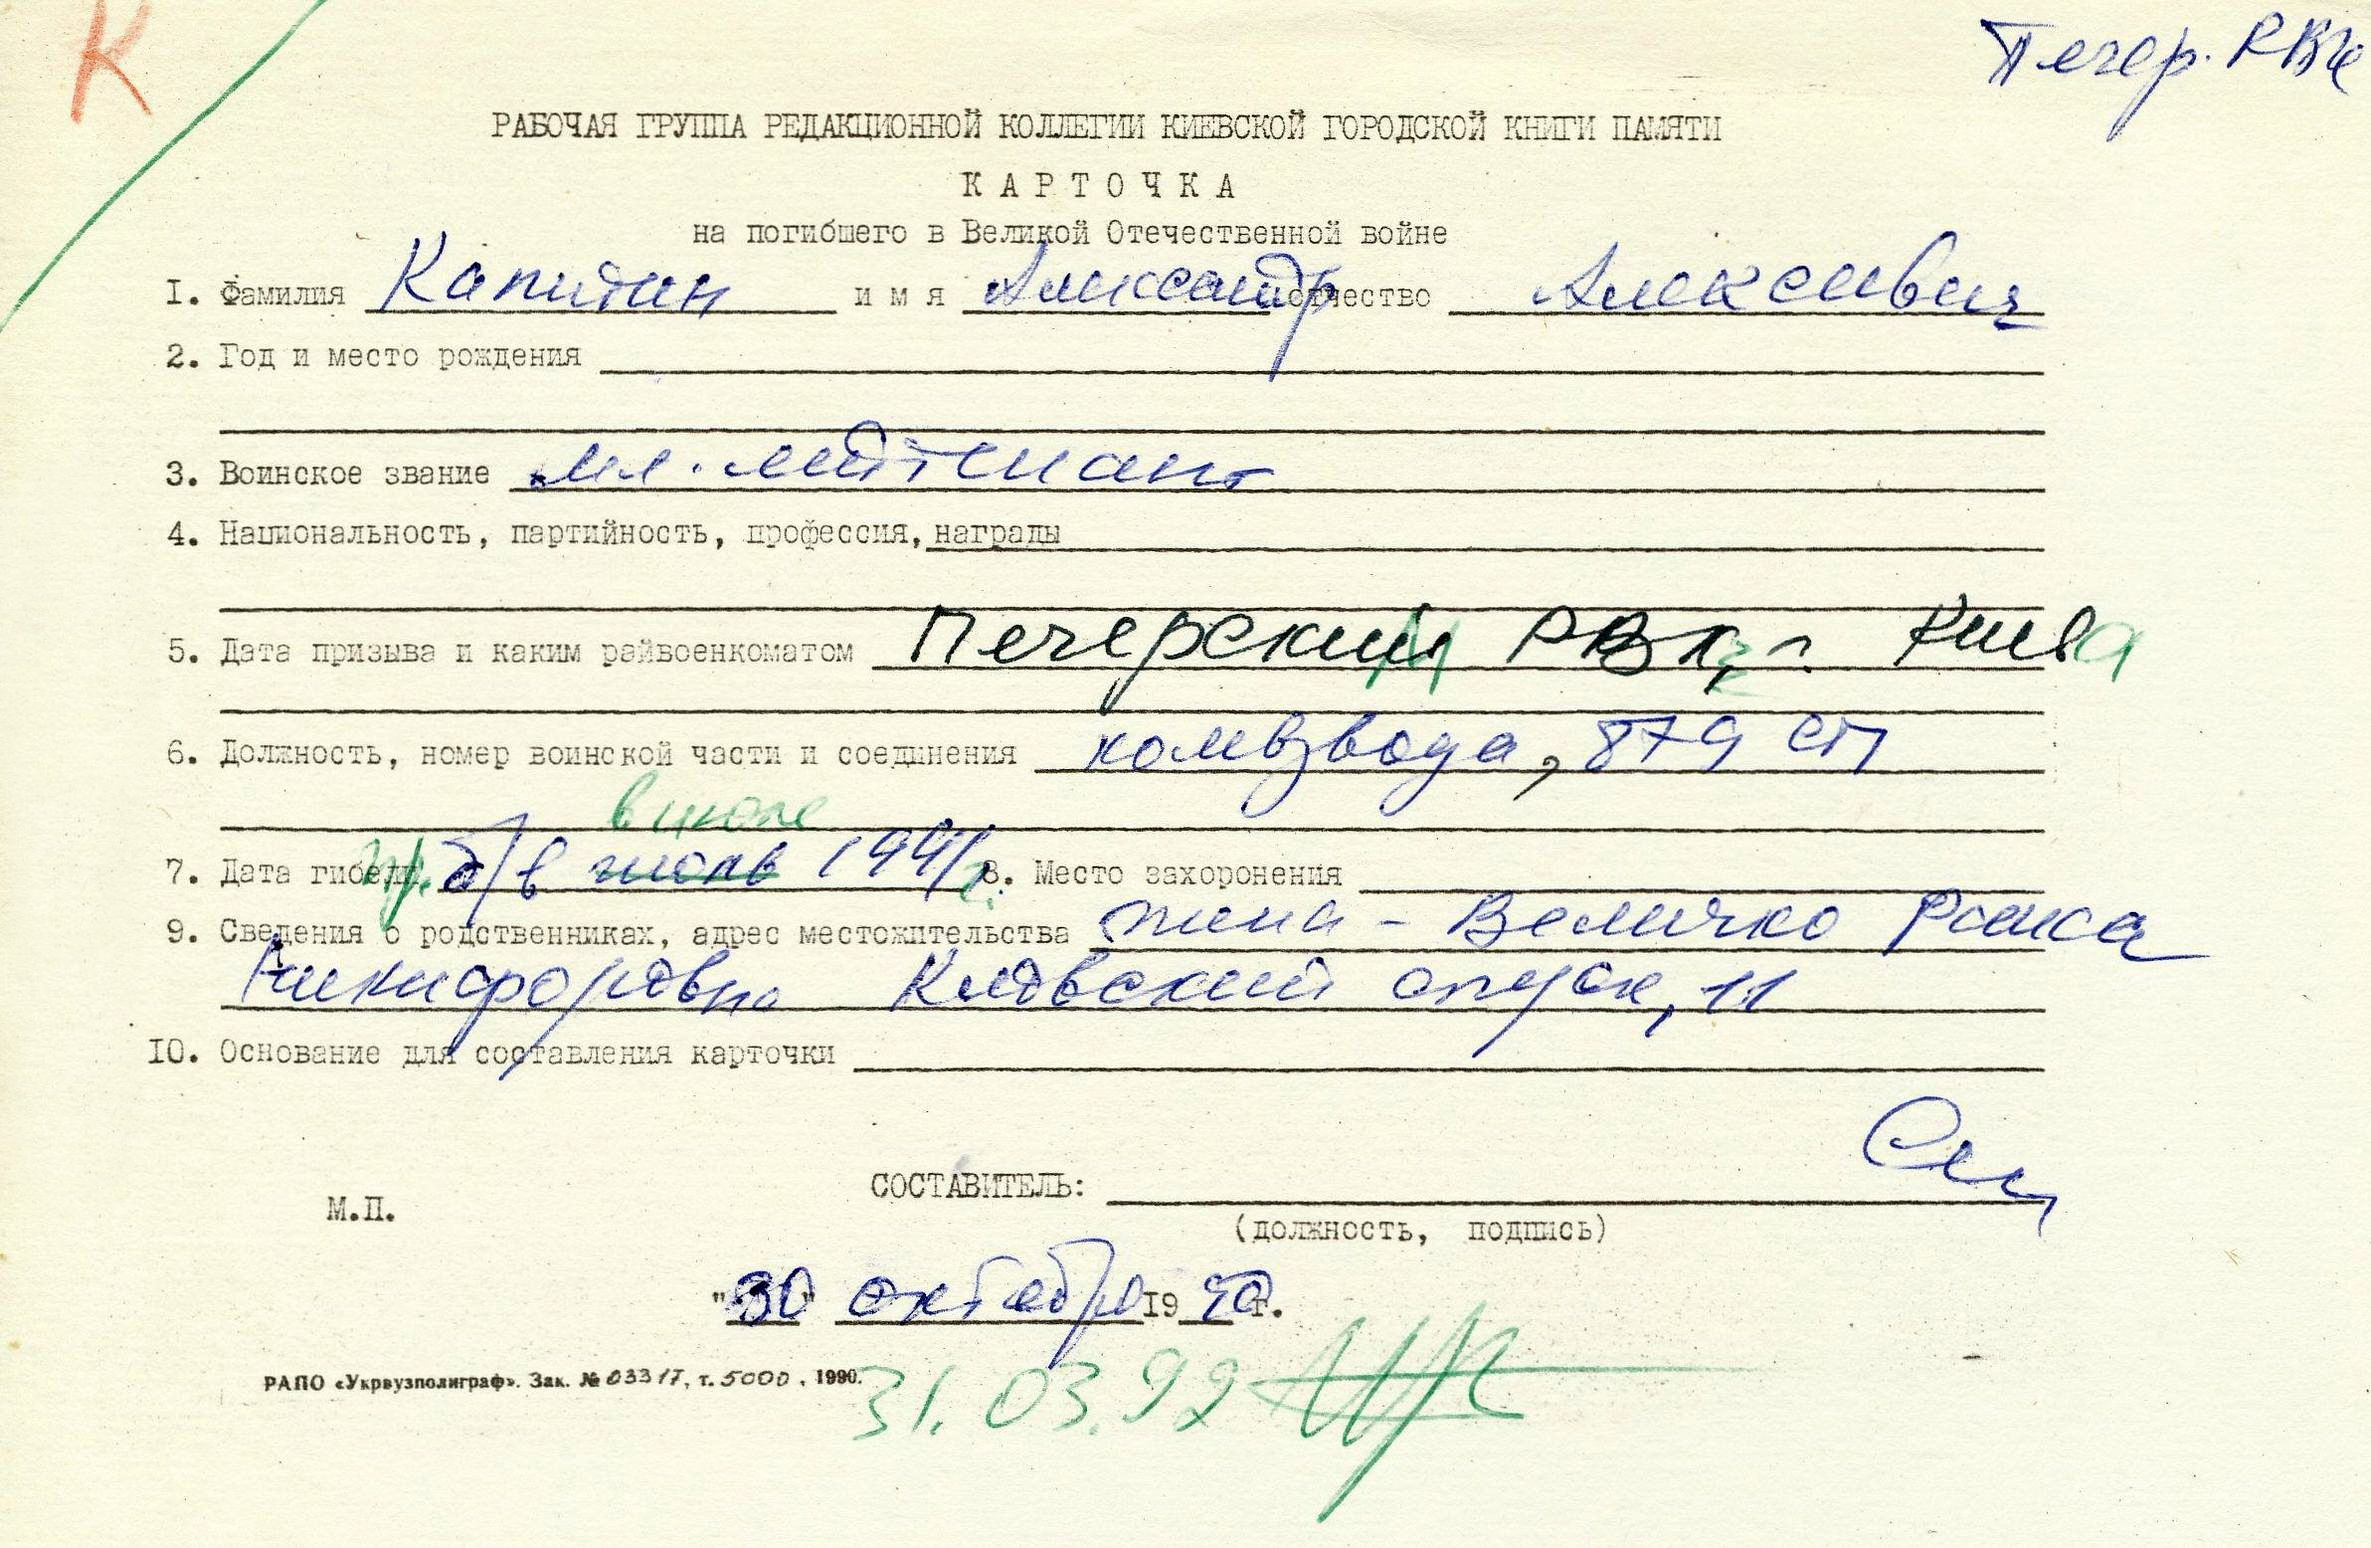 К
Печер. РВК
РАБОЧАЯ ГРУППА РЕДАКЦИОННОЙ КОЛЛЕГИИ КИЕВСКОЙ ГОРОДСКОЙ КНИГИ ПАМЯТИ
КАРТОЧКА
на погибшего в Великой Отечественной войне
1. Фамилия Капитан имя Александр отчество Алексеевич
2. Год и место рождения
3. Воинское звание мл. лейтенант
4. Национальность, партийность, профессия, награды
5. Дата призыва и каким райвоенкоматом Печерский РВК, г. Киева
6. Должность, номер воинской части и соединения комвзвода, 879 сп
в июле
7. Дата гибели б/в июль 1941 г. 8. Место захоронения
9. Сведения о родственниках, адрес местожительства жена - Величко Раиса
Никифоровна Киевский спуск, 11
10. Основание для составления карточки
СОСТАВИТЕЛЬ:
М.П.
(должность, подпись)
"30" октября 1990 г.
РАПО «Укрвузполиграф». Зак. № 03317, т. 5000, 1990.
31.03.92